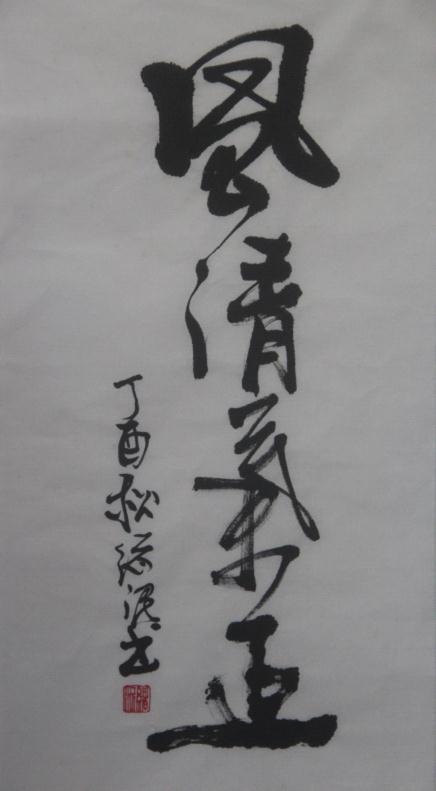 風清氣正
丁酉秋
书